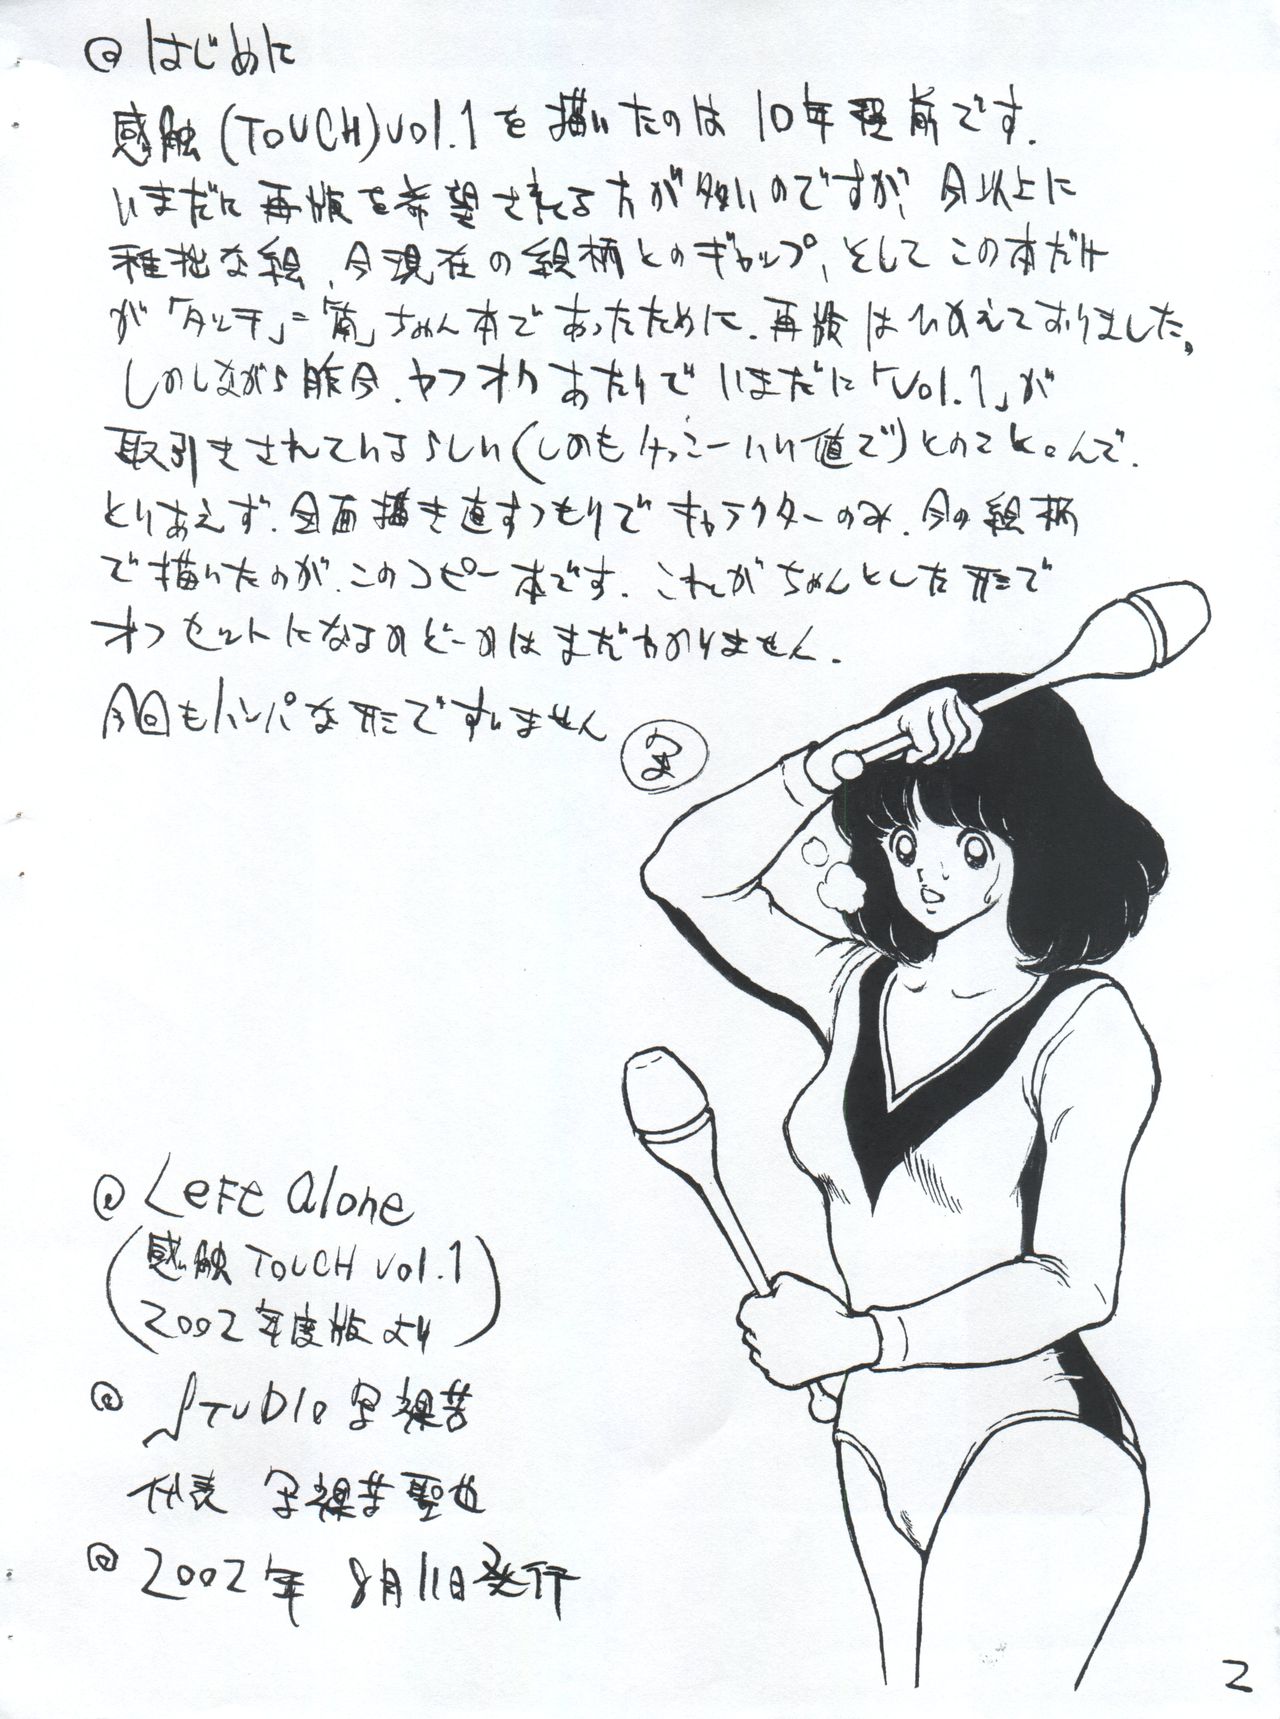 @ はじめに
感触(TOUCH)vol.1を描いたのは10年程前です.
いまだに再版を希望される方が多いのですが、今以上に
稚拙な絵、今現在の絵柄とのギャップ、そしてこの本だけ
が「タッチ」=「南」ちゃん本であったために、再版はひかえておりました。
しかしながら昨今、ヤフオクあたりでいまだに「Vol.1」が
取引きされているらしい(しかもけっこーいい値で)とのことなんで、
とりあえず、全面描き直すつもりでキャラクターのみ、今の絵柄
で描いたのが、このコピー本です. これがちゃんとした形で
オフセットになるのかどーかはまだわかりません.
今回もハンパな形ですいません
@ Left Alone
(感触 TOUCH vol.1
2002年度版より)
@ STUDIO 裸苦
代表 裸苦聖也
@ 2002年 8月11日発行
2